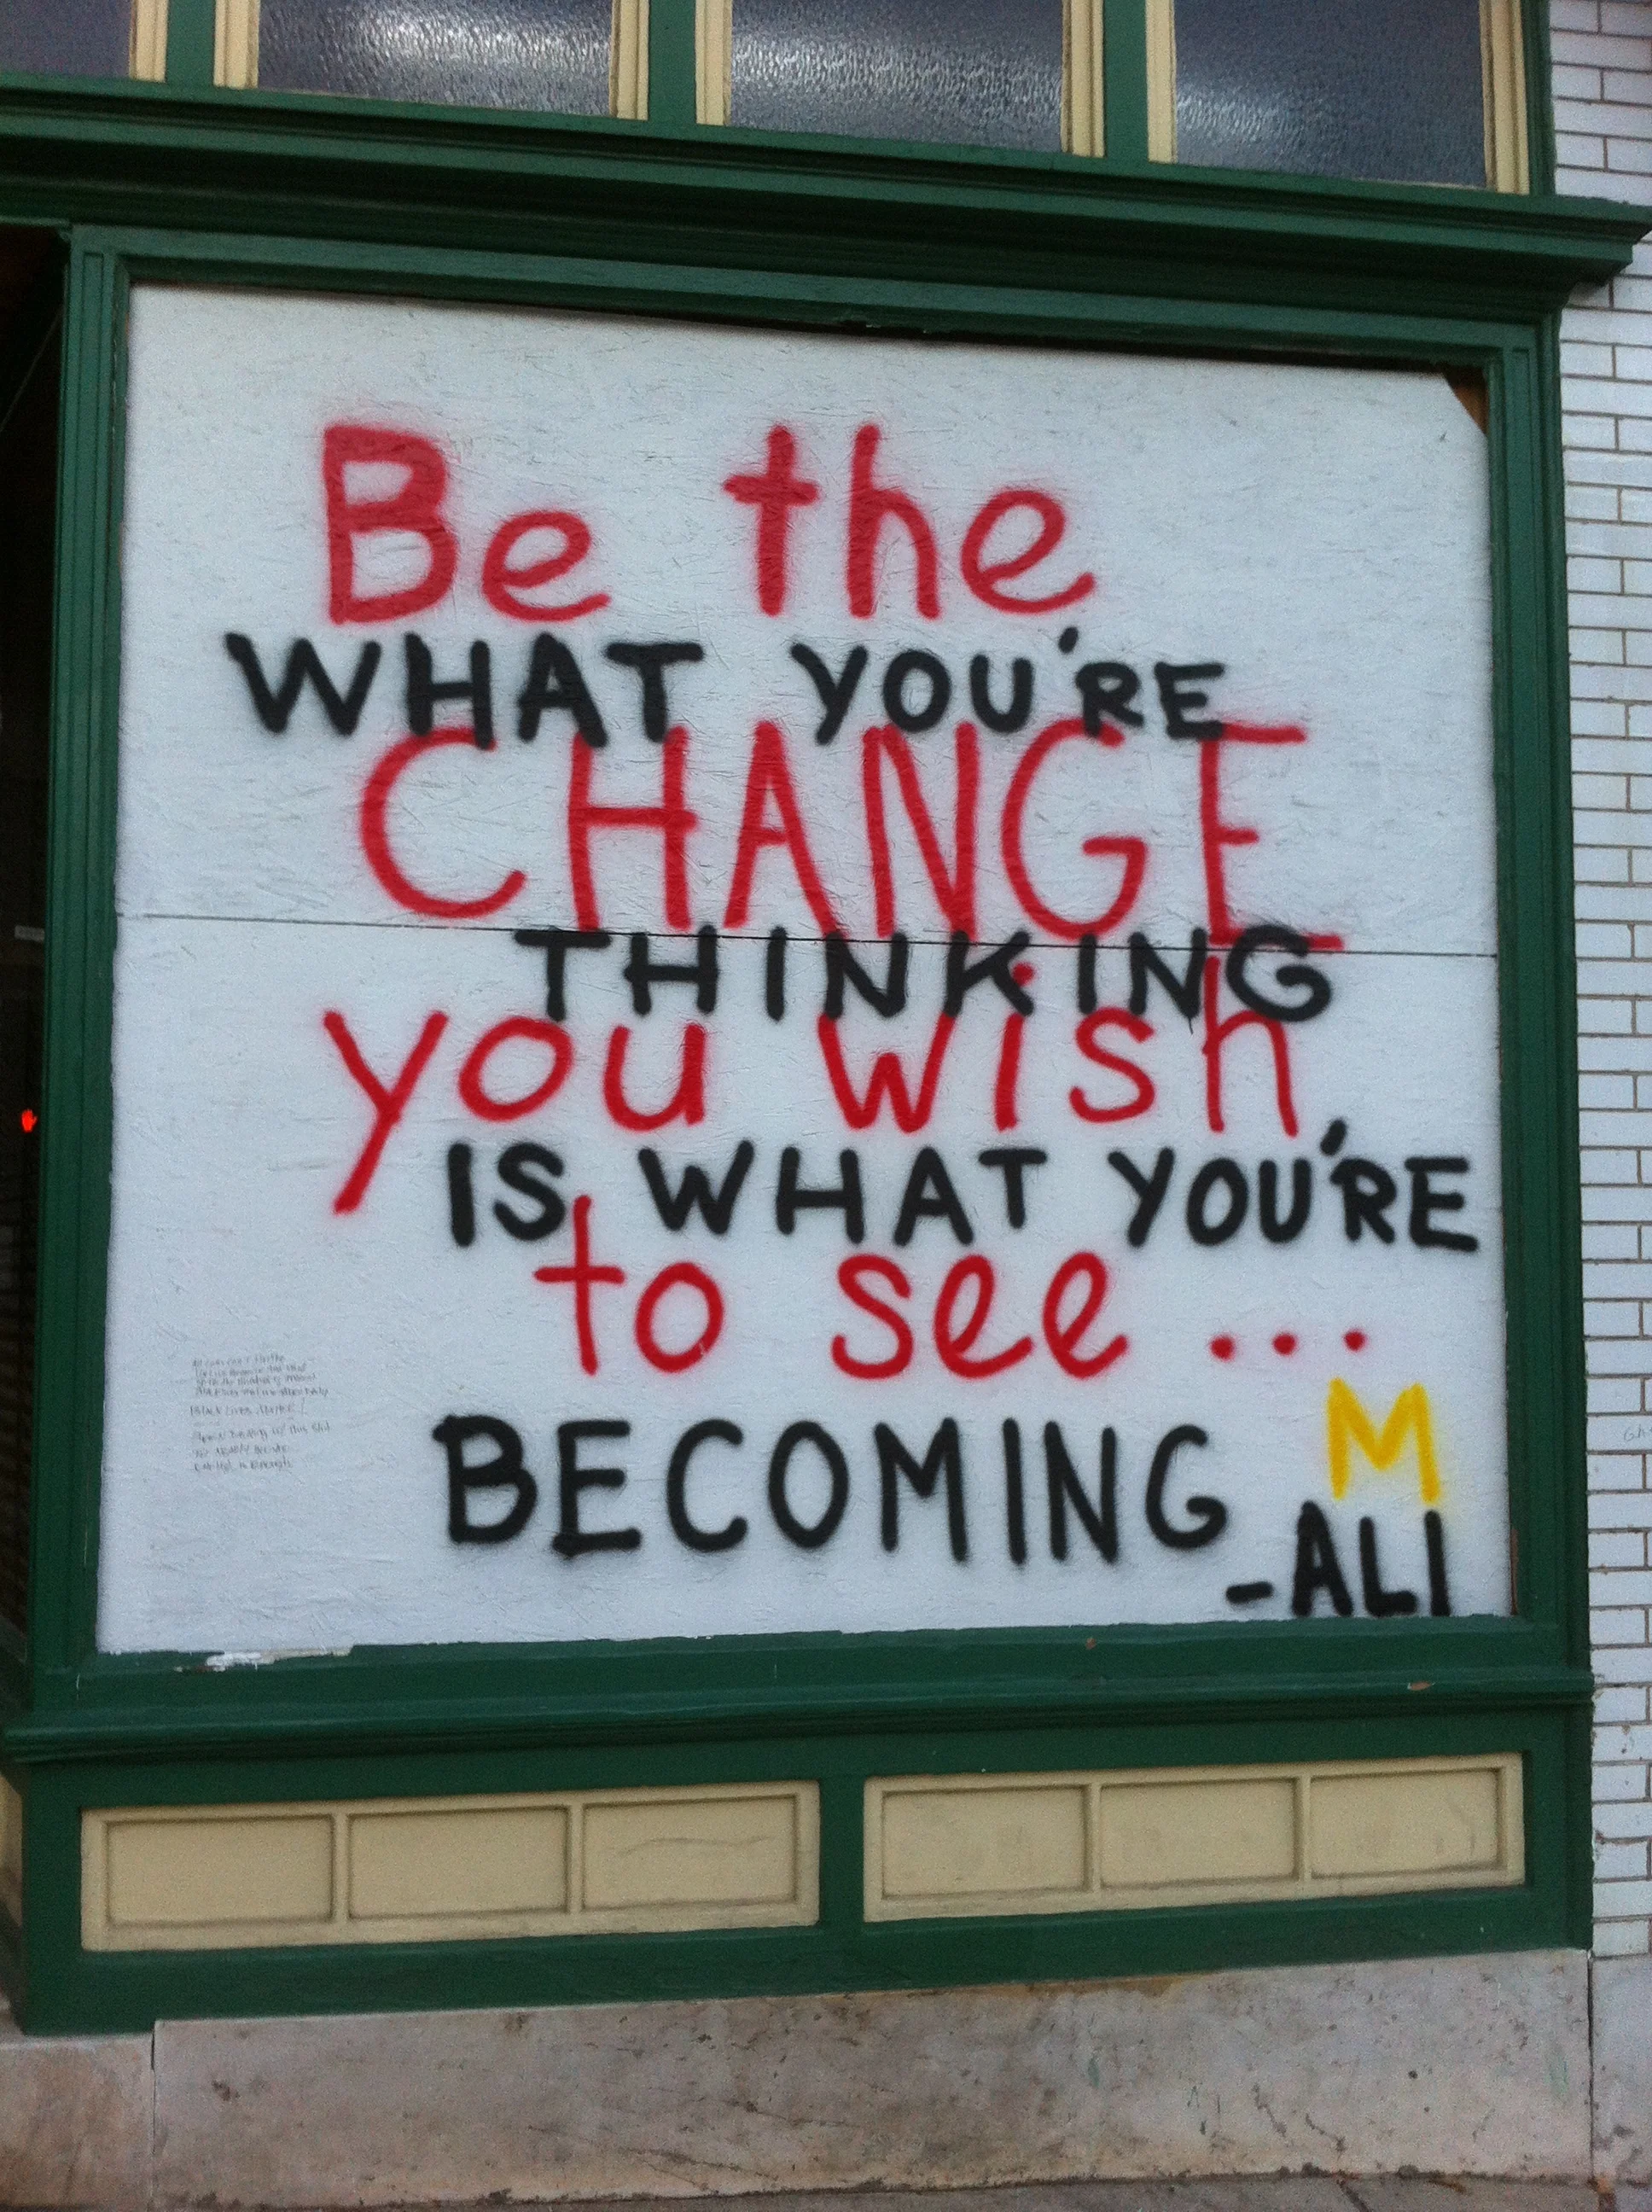 Be the
WHAT YOU'RE
CHANGE
THINKING
you wish
IS WHAT YOU'RE
to see...
BECOMING
M
-ALI
BLACK LIVES MATTER!